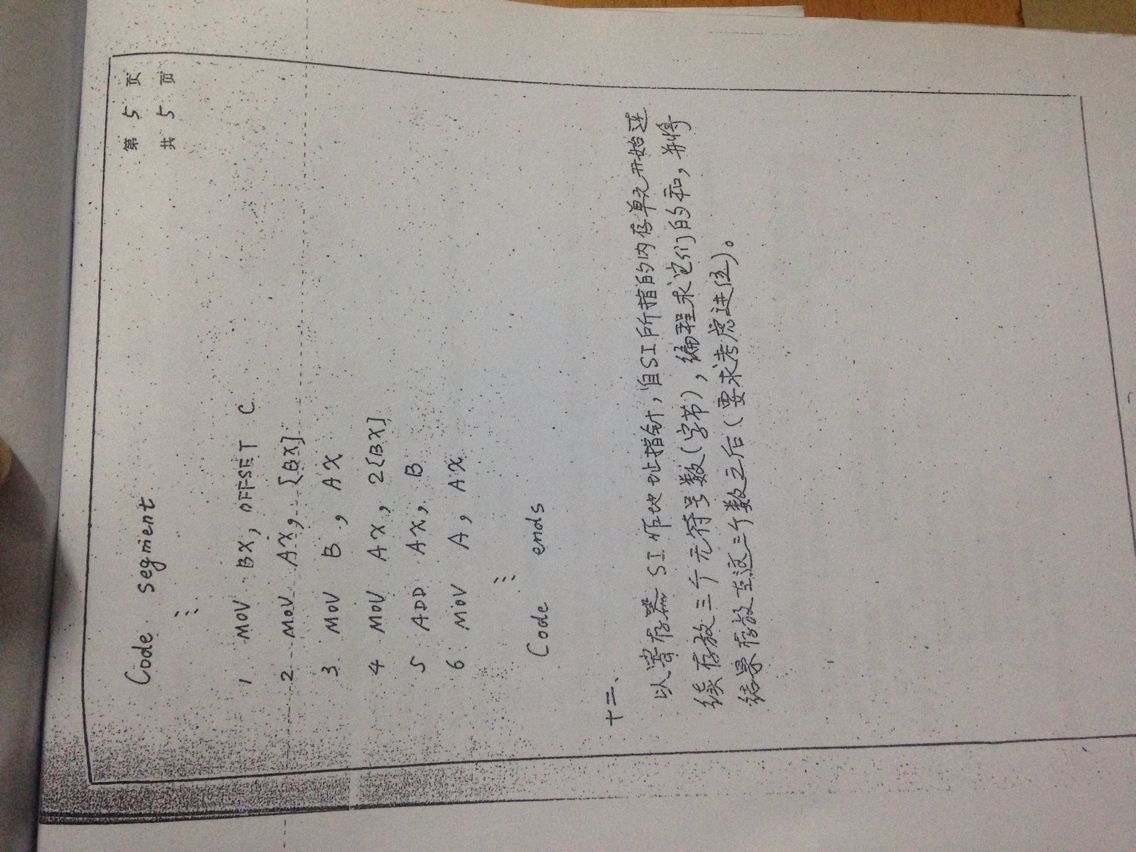 第 5 页
共 5 页
Code segment
⋮
1 MOV BX, OFFSET C
2 MOV AX, [BX]
3 MOV B, AX
4 MOV AX, 2[BX]
5 ADD AX, B
6 MOV A, AX
⋮
Code ends
十二、
以寄存器 SI 作地址指针,自SI所指的内存单元开始连
续存放三个无符号数(字节),编程求它们的和,并将
结果存放在这三个数之后(要求考虑进位)。